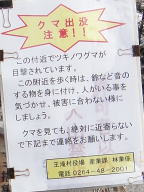 クマ出没
注意！！
この付近でツキノワグマが
目撃されています。
この附近を歩く時は、鈴など音の
する物を身に付け、人がいる事を
気づかせ、被害に合わない様に
しましょう。
クマを見ても、絶対に近寄らない
で下記まで連絡をお願いします。
王滝村役場 産業課 林業係
電話 0264-48-2001